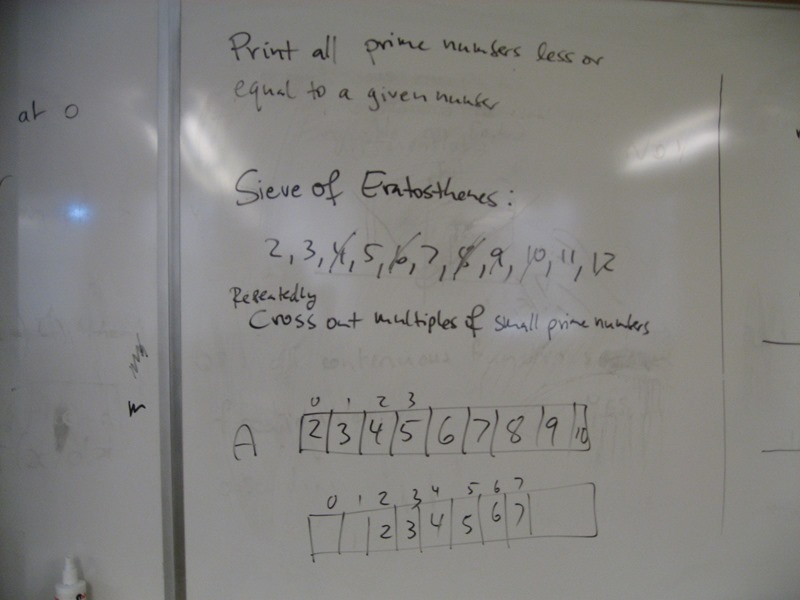 at 0
Print all prime numbers less or
equal to a given number
Sieve of Eratosthenes:
2, 3, 4, 5, 6, 7, 8, 9, 10, 11, 12
Repeatedly
Cross out multiples of small prime numbers
0 1 2 3
A 2 3 4 5 6 7 8 9 10
0 1 2 3 4 5 6 7
2 3 4 5 6 7